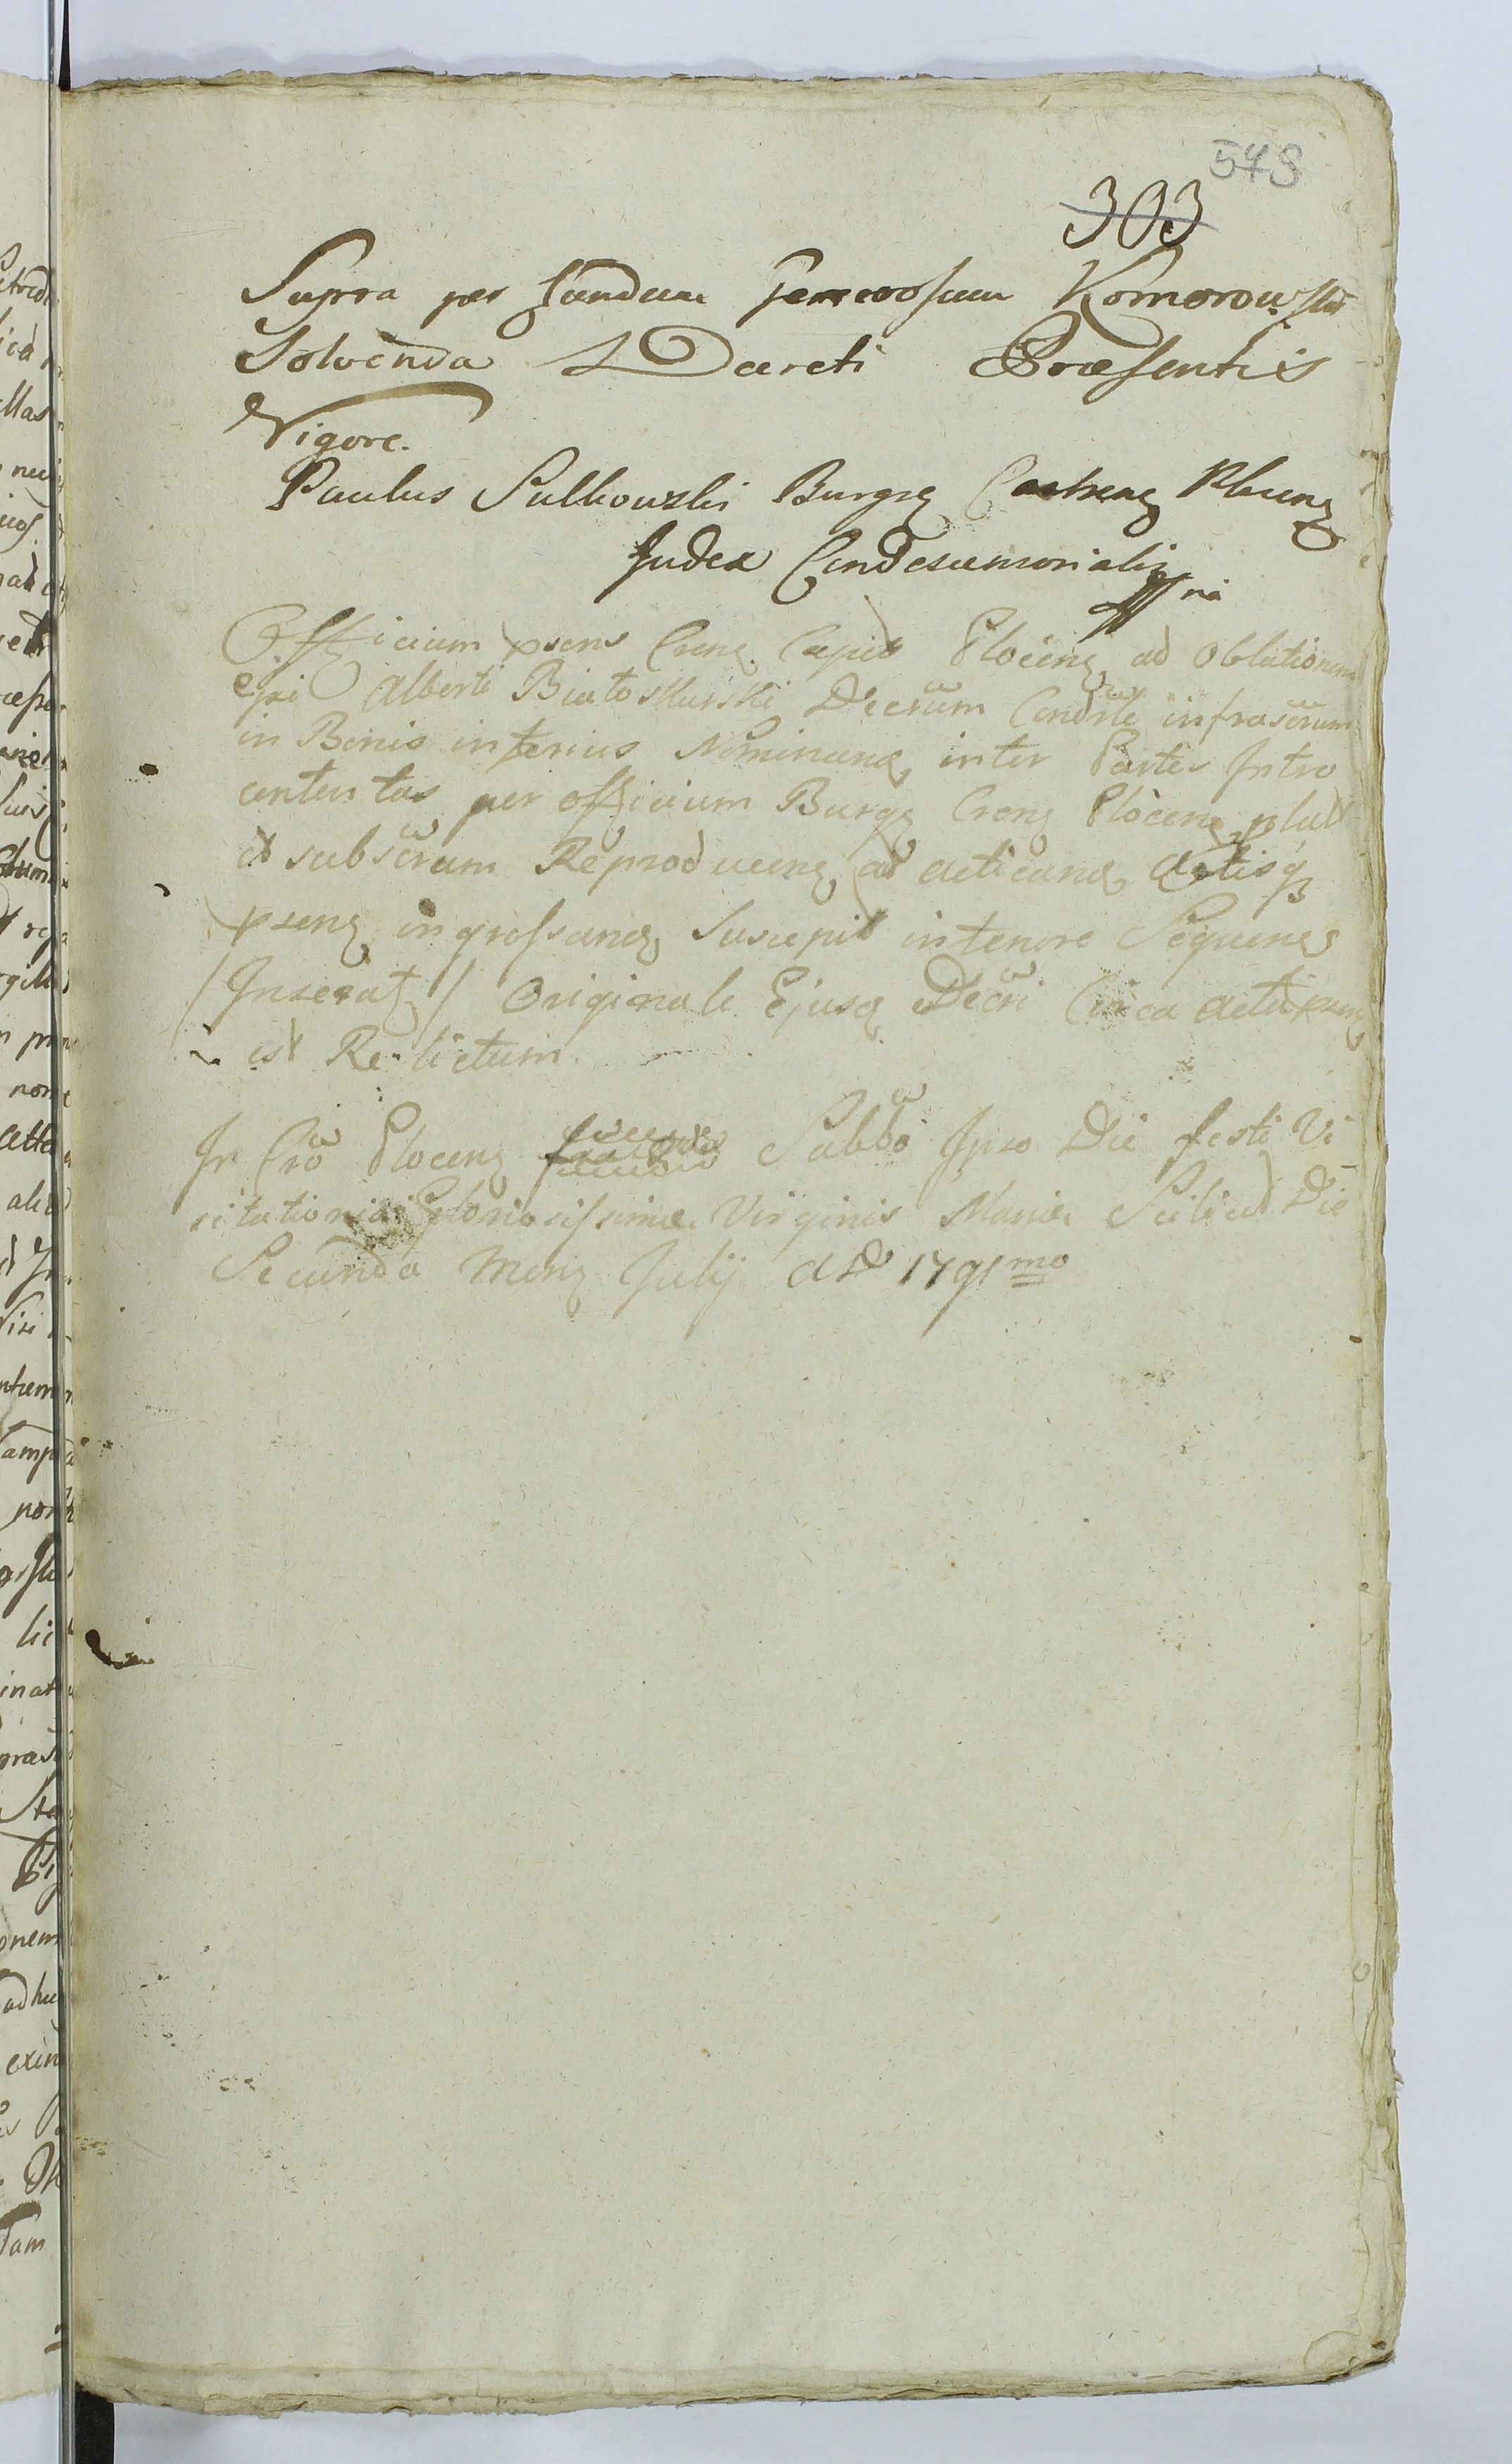 578
303
Supra per eundem Generosum Komorowski
Solvenda Decreti Præsentis
Vigore.
Paulus Sulkowski Burg Castren Plocen
Judex Condescensorialis
mp
Officium psens Crense Capit Plocens ad Oblationem
Alberti Białoskurski Decrum Condrle infrascrum
in Bonis inferius Nominand inter Partes Intro
contentas per officium Burg Crens Plocens plat
et subscrum Reproducens ad acticand Actisq
psens ingrossand Suscepit in tenore Sequens
/ Inserat / Originale Ejusd Decri Circa Acta psens
est Relictum.
In Cro Plocens Sabbo Ipso Die festi Vi
sitationis Gloriosissimæ Virginis Mariæ Scilicet Die
Secunda Mens Julij A D 1791mo